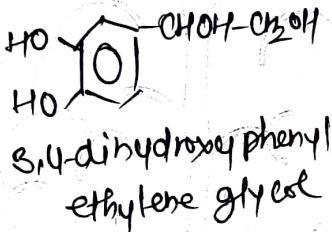 HO
-CHOH-CH2OH
HO
3,4-dihydroxy phenyl
ethylene glycol